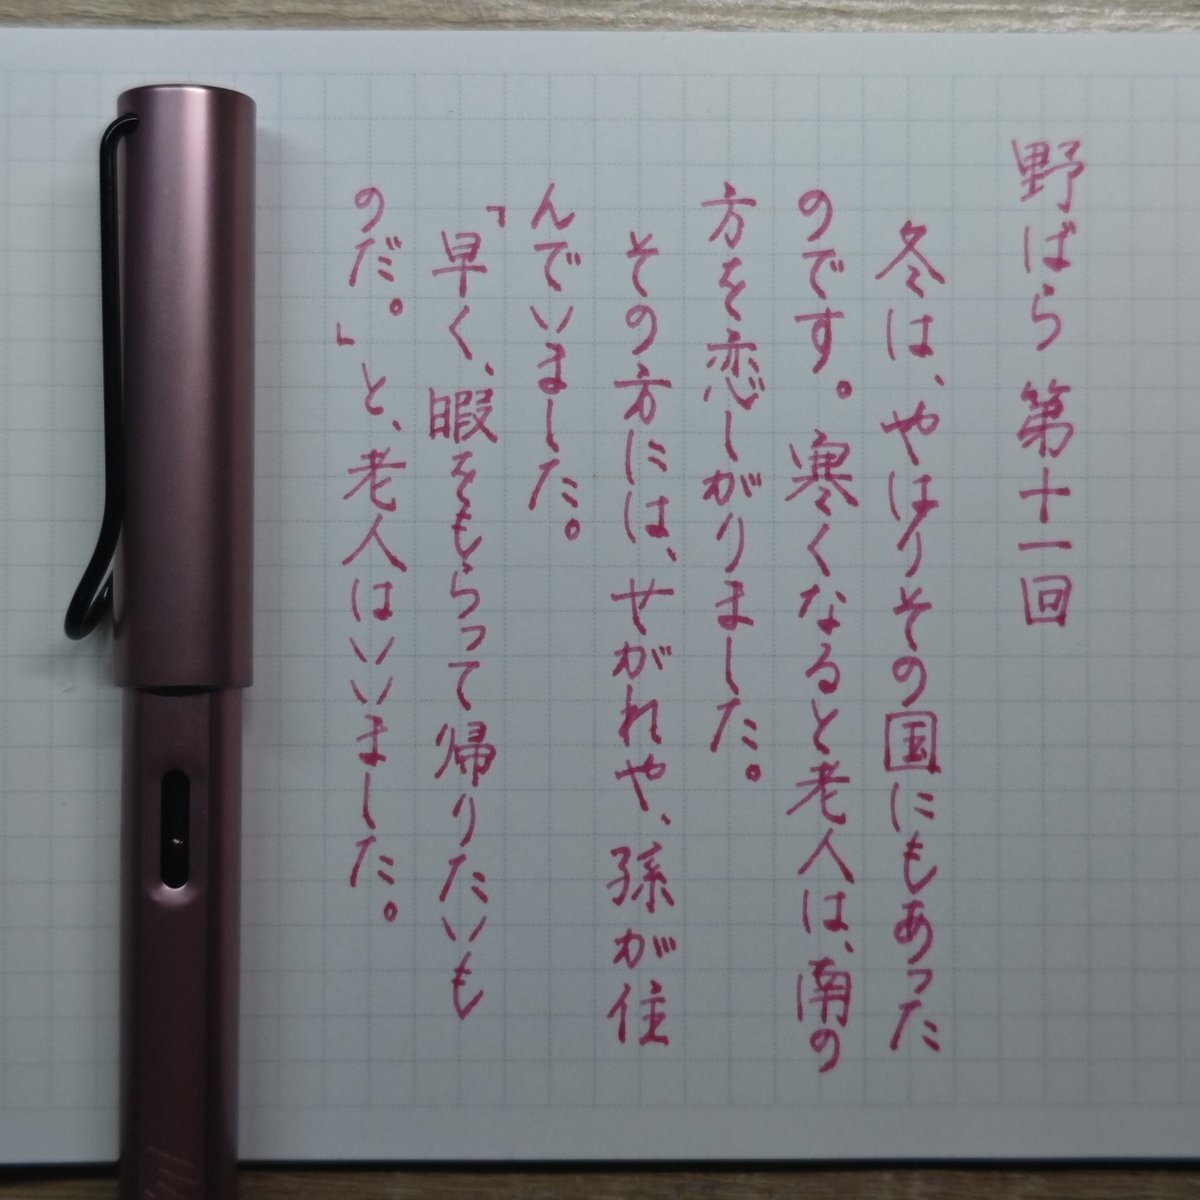 野ばら 第十一回
冬は、やはりその国にもあった
のです。寒くなると老人は、南の
方を恋しがりました。
その方には、せがれや、孫が住
んでいました。
「早く、暇をもらって帰りたいも
のだ。」と、老人はいいました。